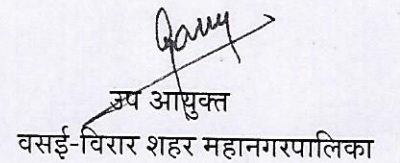 उप आयुक्त
वसई-विरार शहर महानगरपालिका